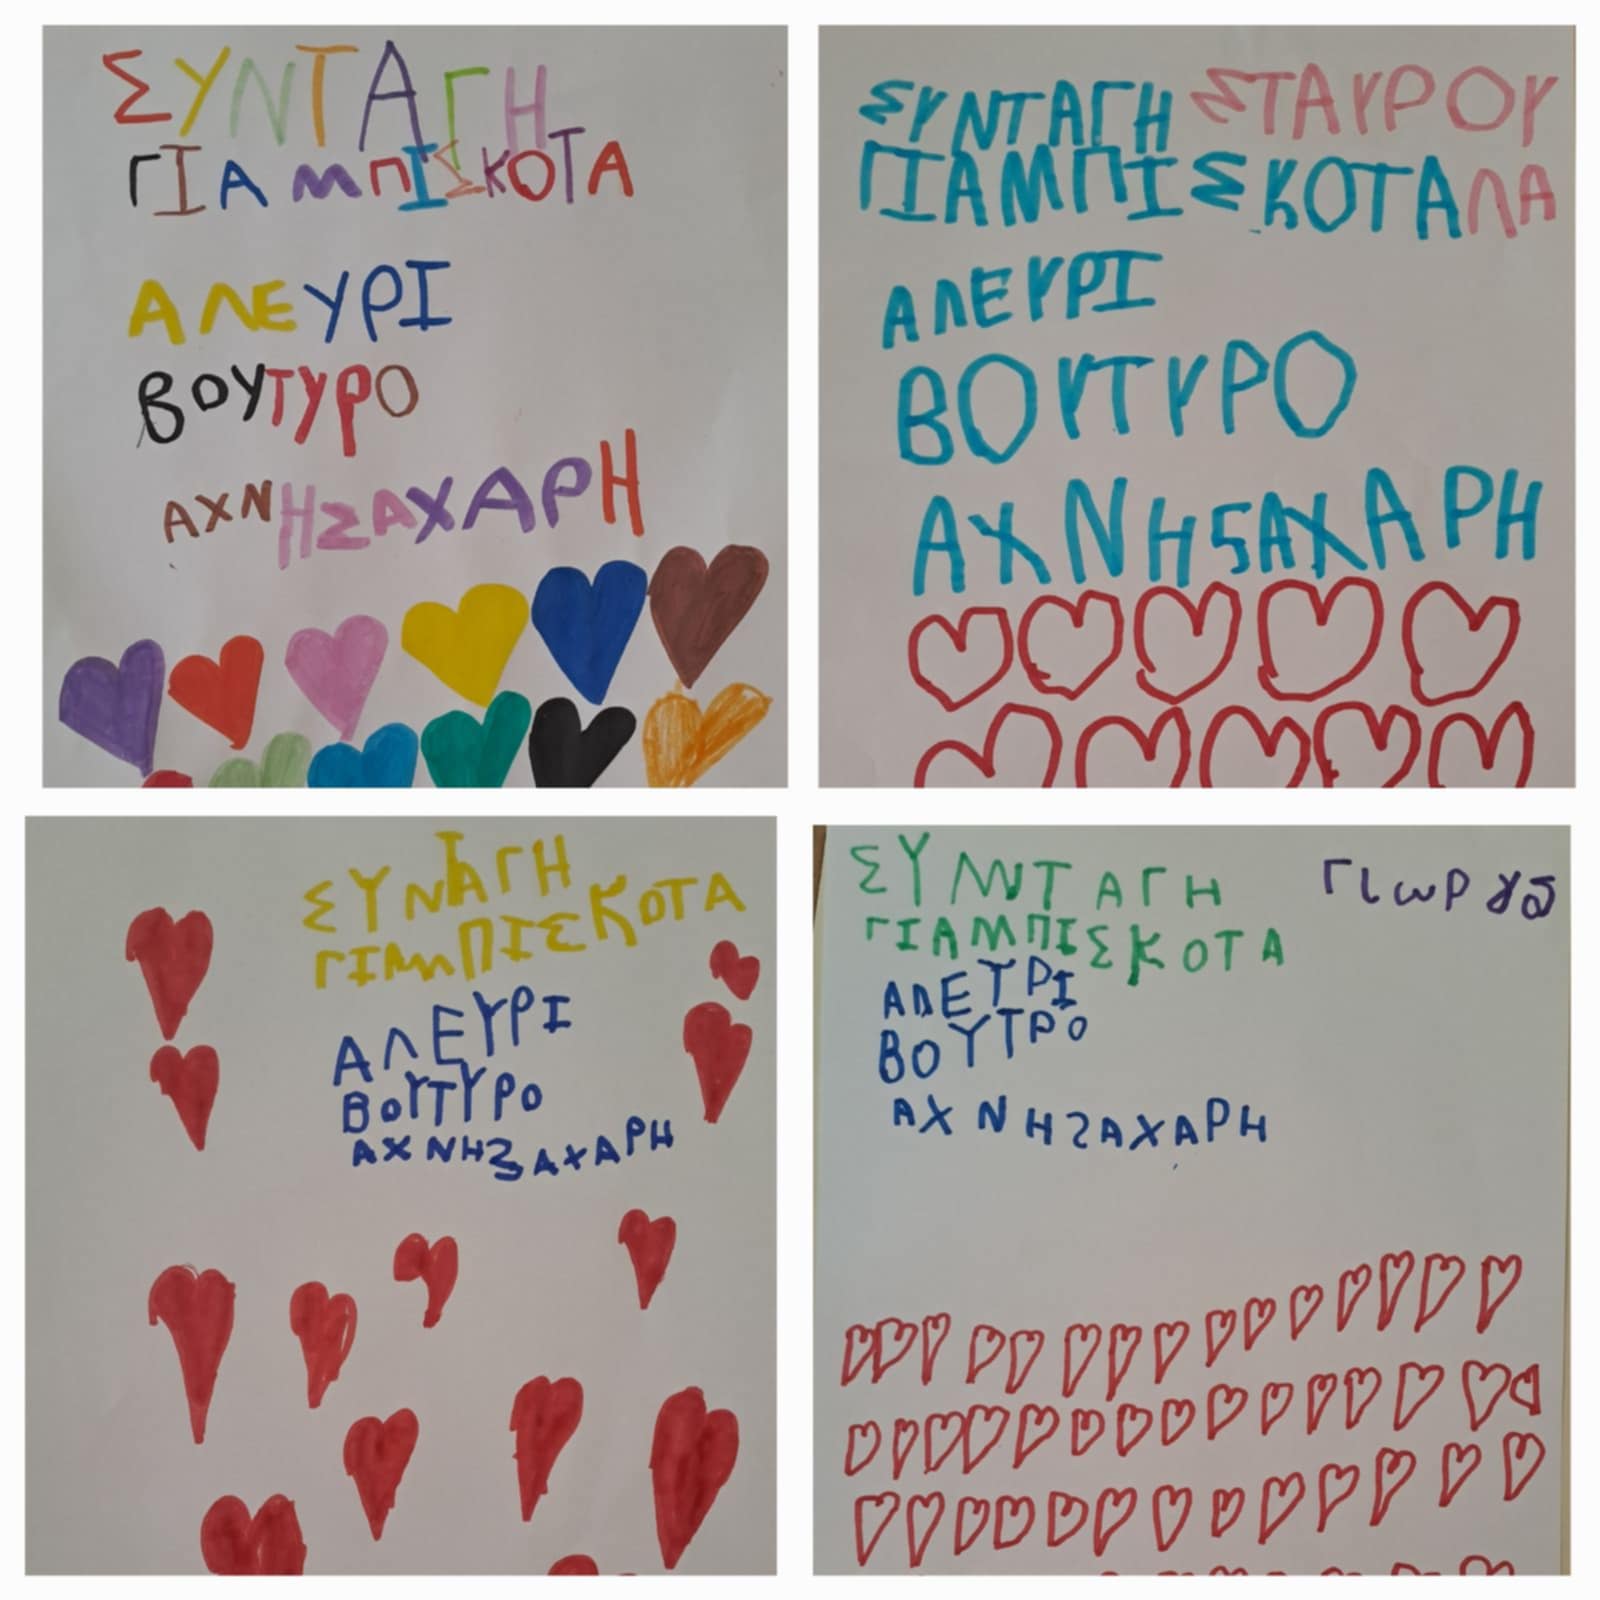 ΣΥΝΤΑΓΗ
ΓΙΑ ΜΠΙΣΚΟΤΑ
ΑΛΕΥΡΙ
ΒΟΥΤΥΡΟ
ΑΧΝΗΣΑΧΑΡΗ
ΣΥΝΤΑΓΗ ΣΤΑΥΡΟΥ
ΓΙΑΜΠΙΣΚΟΤΑ ΛΑ
ΑΛΕΥΡΙ
ΒΟΥΤΥΡΟ
ΑΧΝΗΣΑΧΑΡΗ
ΣΥΝΤΑΓΗ
ΓΙΑΜΠΙΣΚΟΤΑ
ΑΛΕΥΡΙ
ΒΟΥΤΥΡΟ
ΑΧΝΗΣΑΧΑΡΗ
ΣΥΝΝΤΑΓΗ
ΓΙΑΜΠΙΣΚΟΤΑ
ΑΛΕΥΡΙ
ΒΟΥΤΡΟ
ΑΧΝΗΣΑΧΑΡΗ